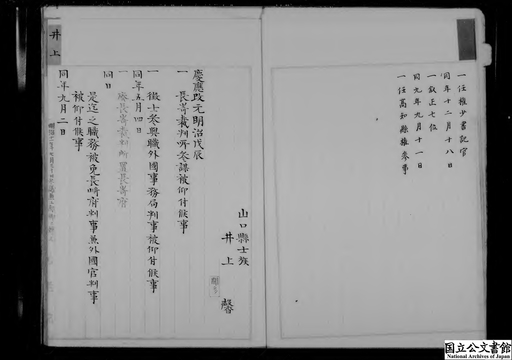 一任権少書記官
同年十二月十八日
一叙正七位
同九年九月十一日
一任高知縣権参事
井上
山口縣士族
井上馨
慶應改元明治戊辰
一長崎裁判所参謀被仰付候事
一徴士参與職外國事務局判事被仰付候事
同年五月四日
一廃長崎裁判所置長崎府
同日
是迄之職務被免長崎府判事兼外國官判事
被仰付候事
同年九月二日
国立公文書館
National Archives of Japan